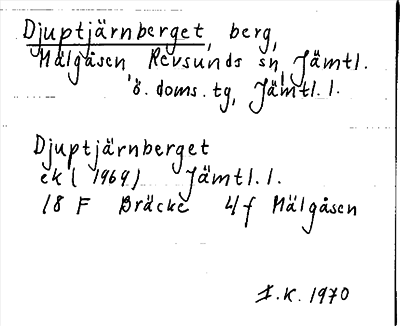 Djuptjärnberget, berg,
Mälgåsen Revsunds sn, Jämtl.
ö. doms. tg, Jämtl. l.
Djuptjärnberget
ek (1969) Jämtl. l.
18 F Bräcke 4f Mälgåsen
I.K. 1970